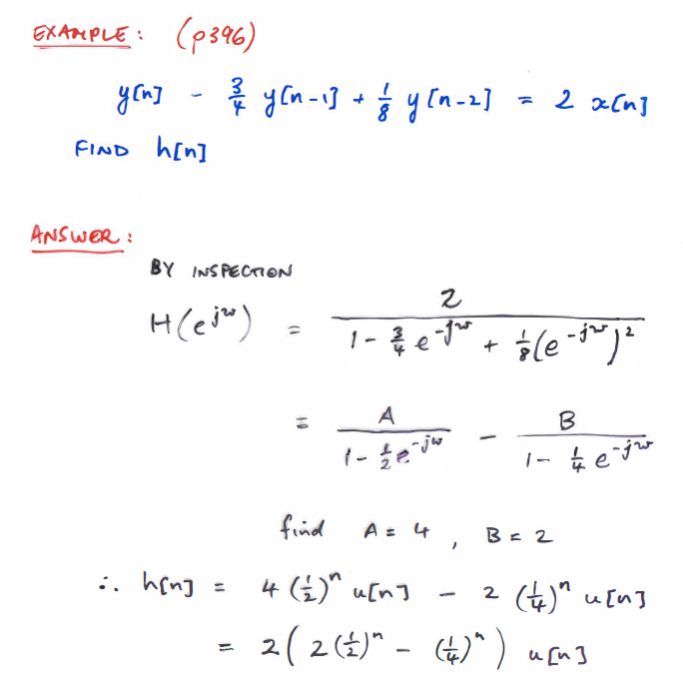 EXAMPLE: (p396)
y[n] - 3/4 y[n-1] + 1/8 y[n-2] = 2 x[n]
FIND h[n]
ANSWER:
BY INSPECTION
H(e^jω) = 2 / (1 - 3/4 e^-jω + 1/8 (e^-jω)^2)
= A / (1 - 1/2 e^-jω) - B / (1 - 1/4 e^-jω)
find A = 4, B = 2
∴ h[n] = 4 (1/2)^n u[n] - 2 (1/4)^n u[n]
= 2 ( 2 (1/2)^n - (1/4)^n ) u[n]